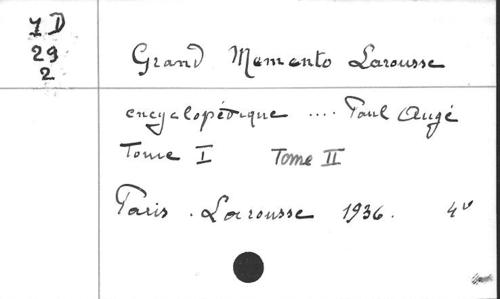 7D
29
2
Grand Memento Larousse
encyclopédique .... Paul Augé
Tome I Tome II
Paris . Larousse 1936. 4º